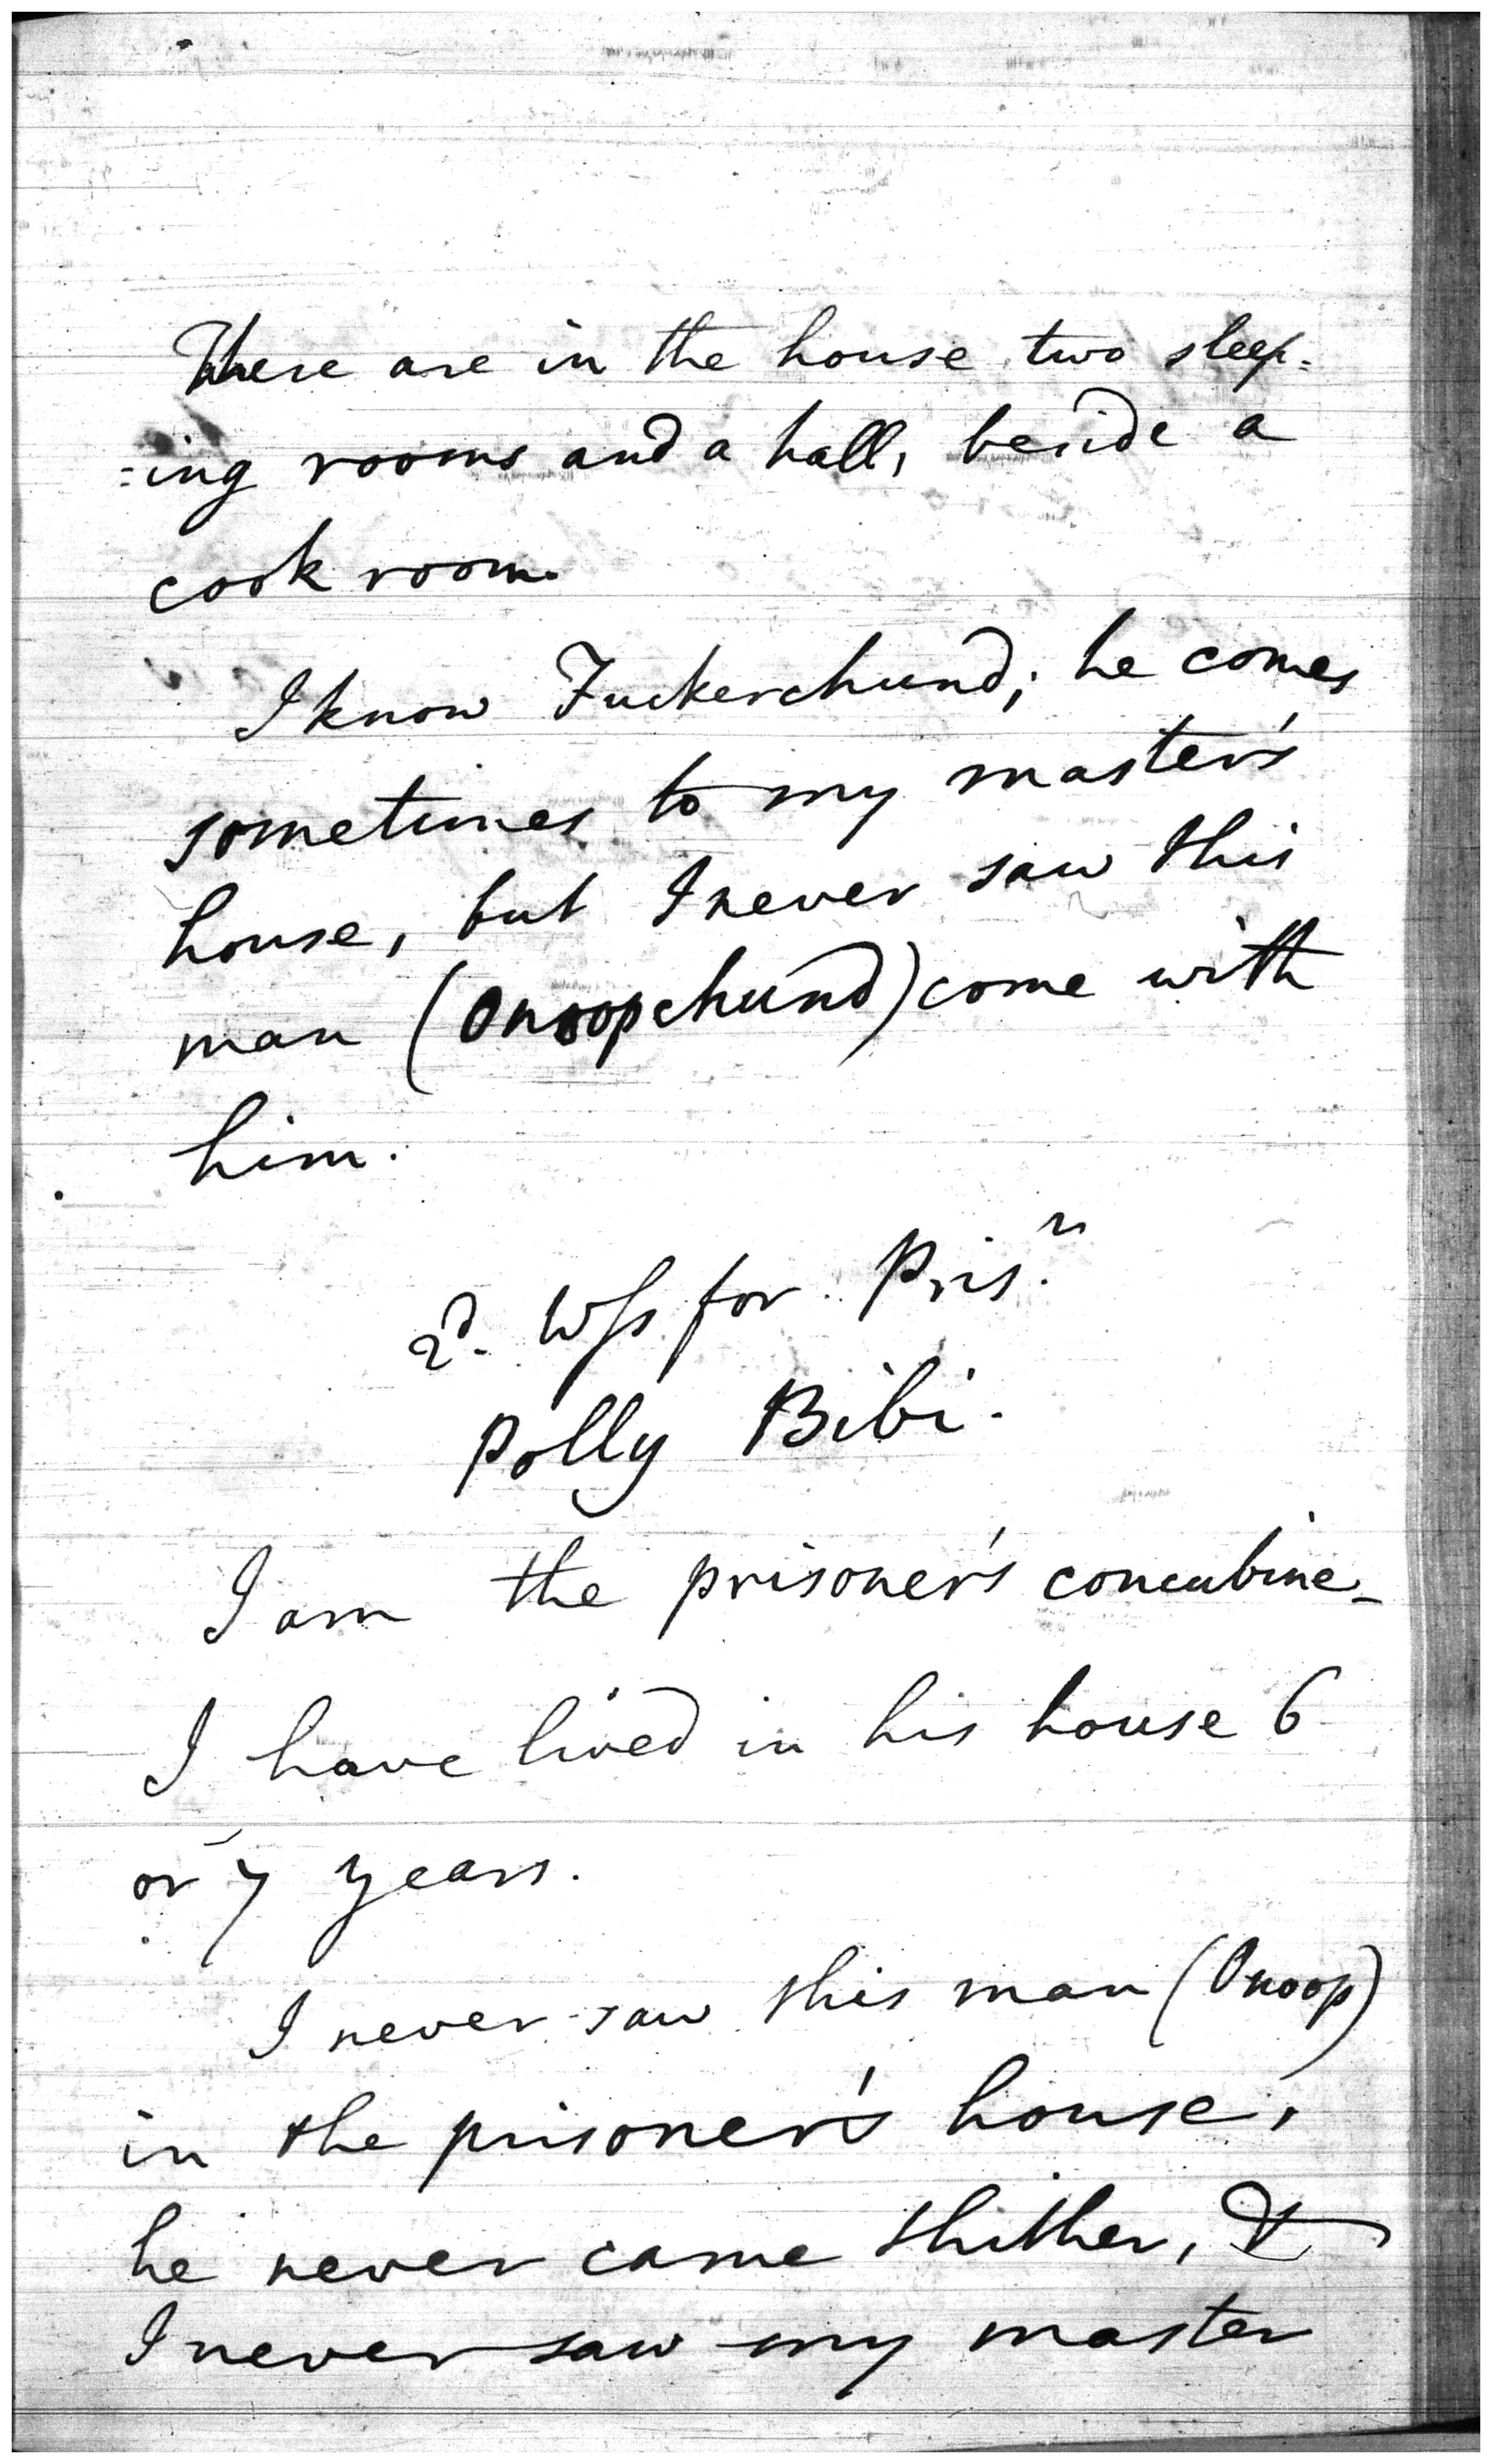 There are in the house two sleep=
=ing rooms and a hall, beside a
cook room.
I know Fuckerchund; he comes
sometimes to my master's
house, but I never saw this
man (Onoopchund) come with
him.
2d. Wss for Pris.n
Polly Bibi.
I am the prisoner's concubine_
I have lived in his house 6
or 7 years.
I never saw this man (Onoop)
in the prisoner's house,
he never came thither, &
I never saw my master